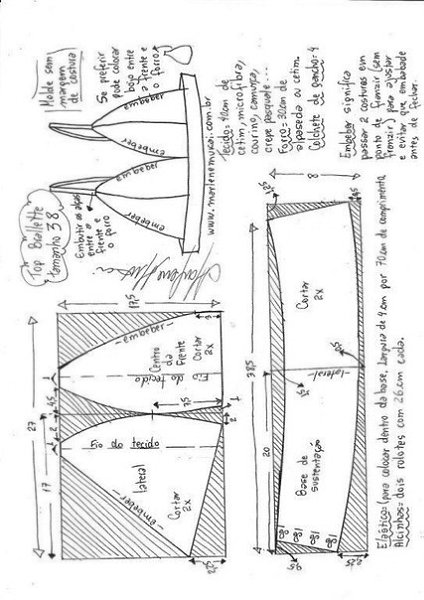 Top Bralette
tamanho 38
Molde sem
margem
de costura
Se preferir
pode colocar
bojo entre
a frente e
o forro
Embutir as alças
entre a
frente e
o forro
embeber
embeber
embeber
embeber
www.marlenemukai.com.br
Tecido: 40cm de
cetim, microfibra,
courino, camurça,
crepe pasquale...
Forro: 30cm de
alpaseda ou cetim.
Colchete de gancho: 4
Embeber significa
passar 2 costuras em
ponto de franzir (sem
franzir) para ajustar
e evitar que embabade
antes de fechar.
27
17
4,5
2
17,5
embeber
Centro
da
Frente
Fio do tecido
Cortar
2x
7,5
2
Fio do tecido
lateral
embeber
Cortar
2x
38,5
20
8
1,5
Cortar
2x
lateral
Base de
sustentação
Elástico: (para colocar dentro da base, largura de 4cm por 70cm de comprimento.
Alcinhas: dois rolotês com 26cm cada.